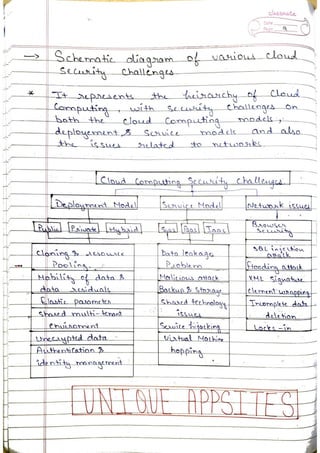 classmate
Date
Page 9
→ Schematic diagram of various cloud
security challenges
* It represents the heirarchy of Cloud
Computing, with security challenges on
both the cloud Computing models,
deployement & Service models and also
the issues related to networks.
Cloud Computing Security Challenges
Deployment Model
Service Model
Network issues
Public
Private
Hybrid
SPaas
Iaas
Browser
Security
Cloning & resource
Pooling
Mobility of data &
data residuals
Elastic parameter
Shared multi-tenant
environment
Unencrypted data
Authentication &
identity management
Data leakage
Problem
Malicious attack
Backup & Storage
Shared technology
issues
Service hijacking
Virtual Machine
hopping
SQL injection
attack
flooding attack
XML signature
element wrapping
Incomplete data
deletion
Locks-in
UNIQUE APPSITES